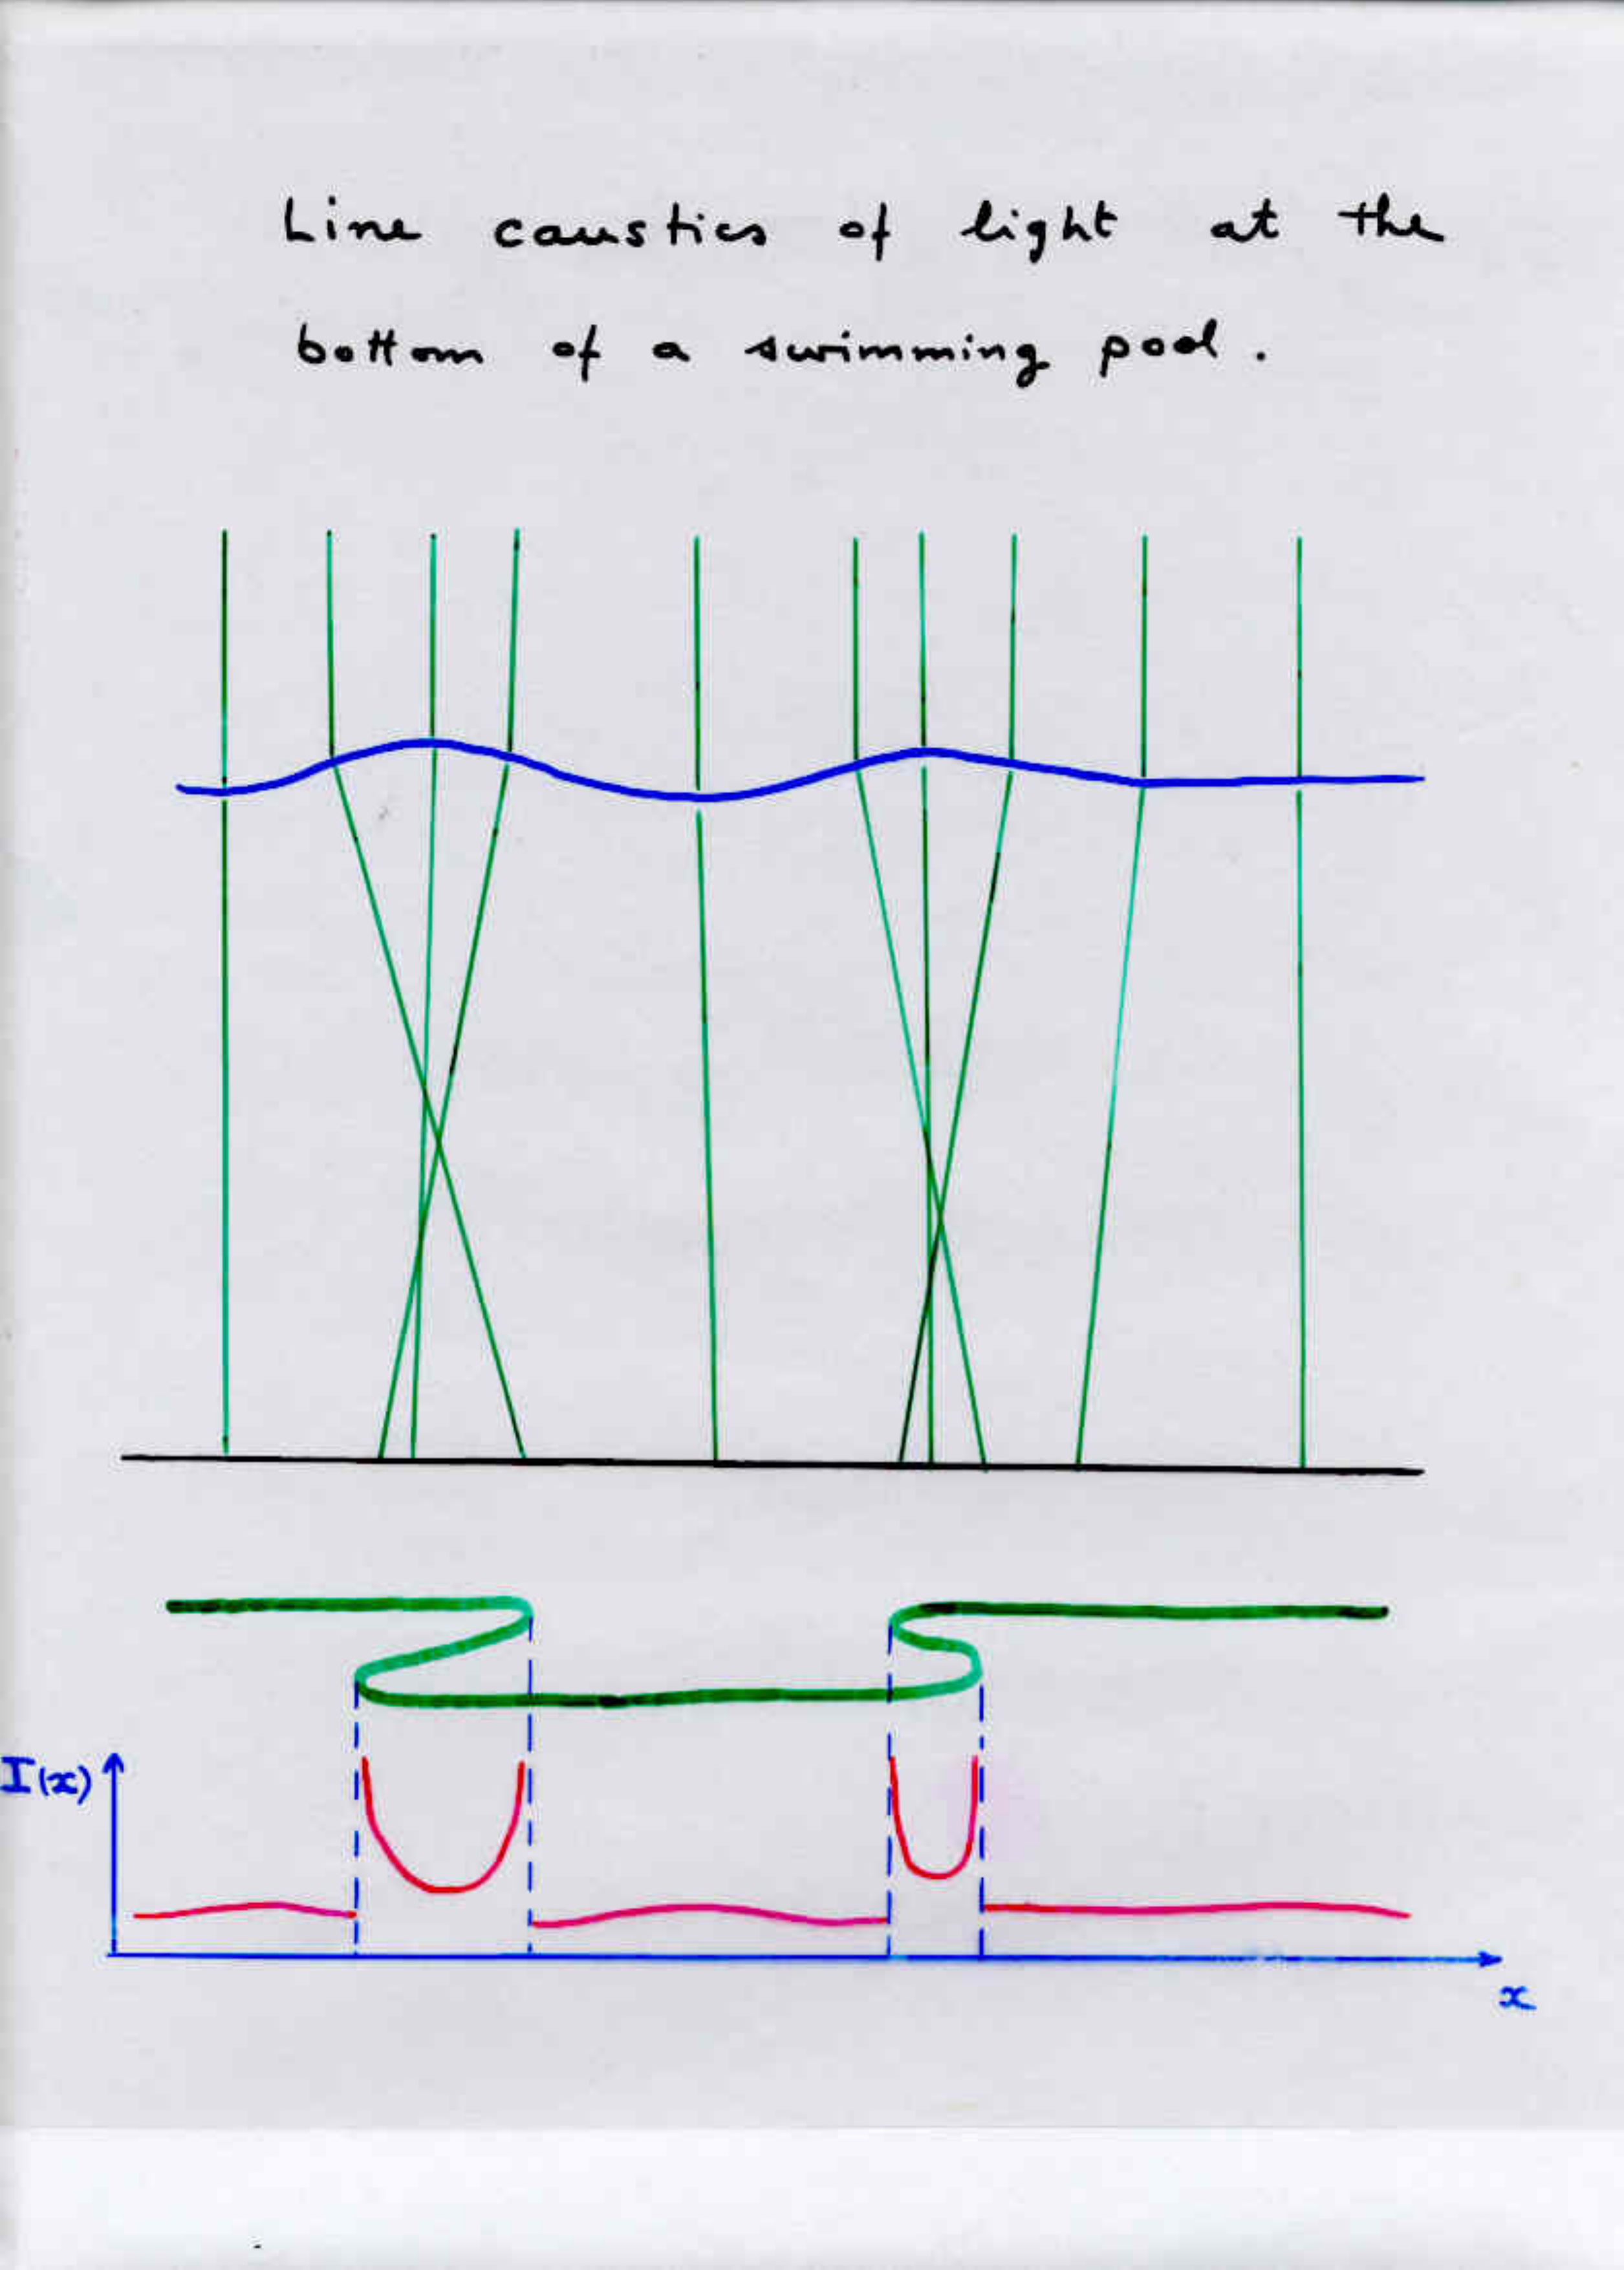 Line caustics of light at the
bottom of a swimming pool.
I(x)
x